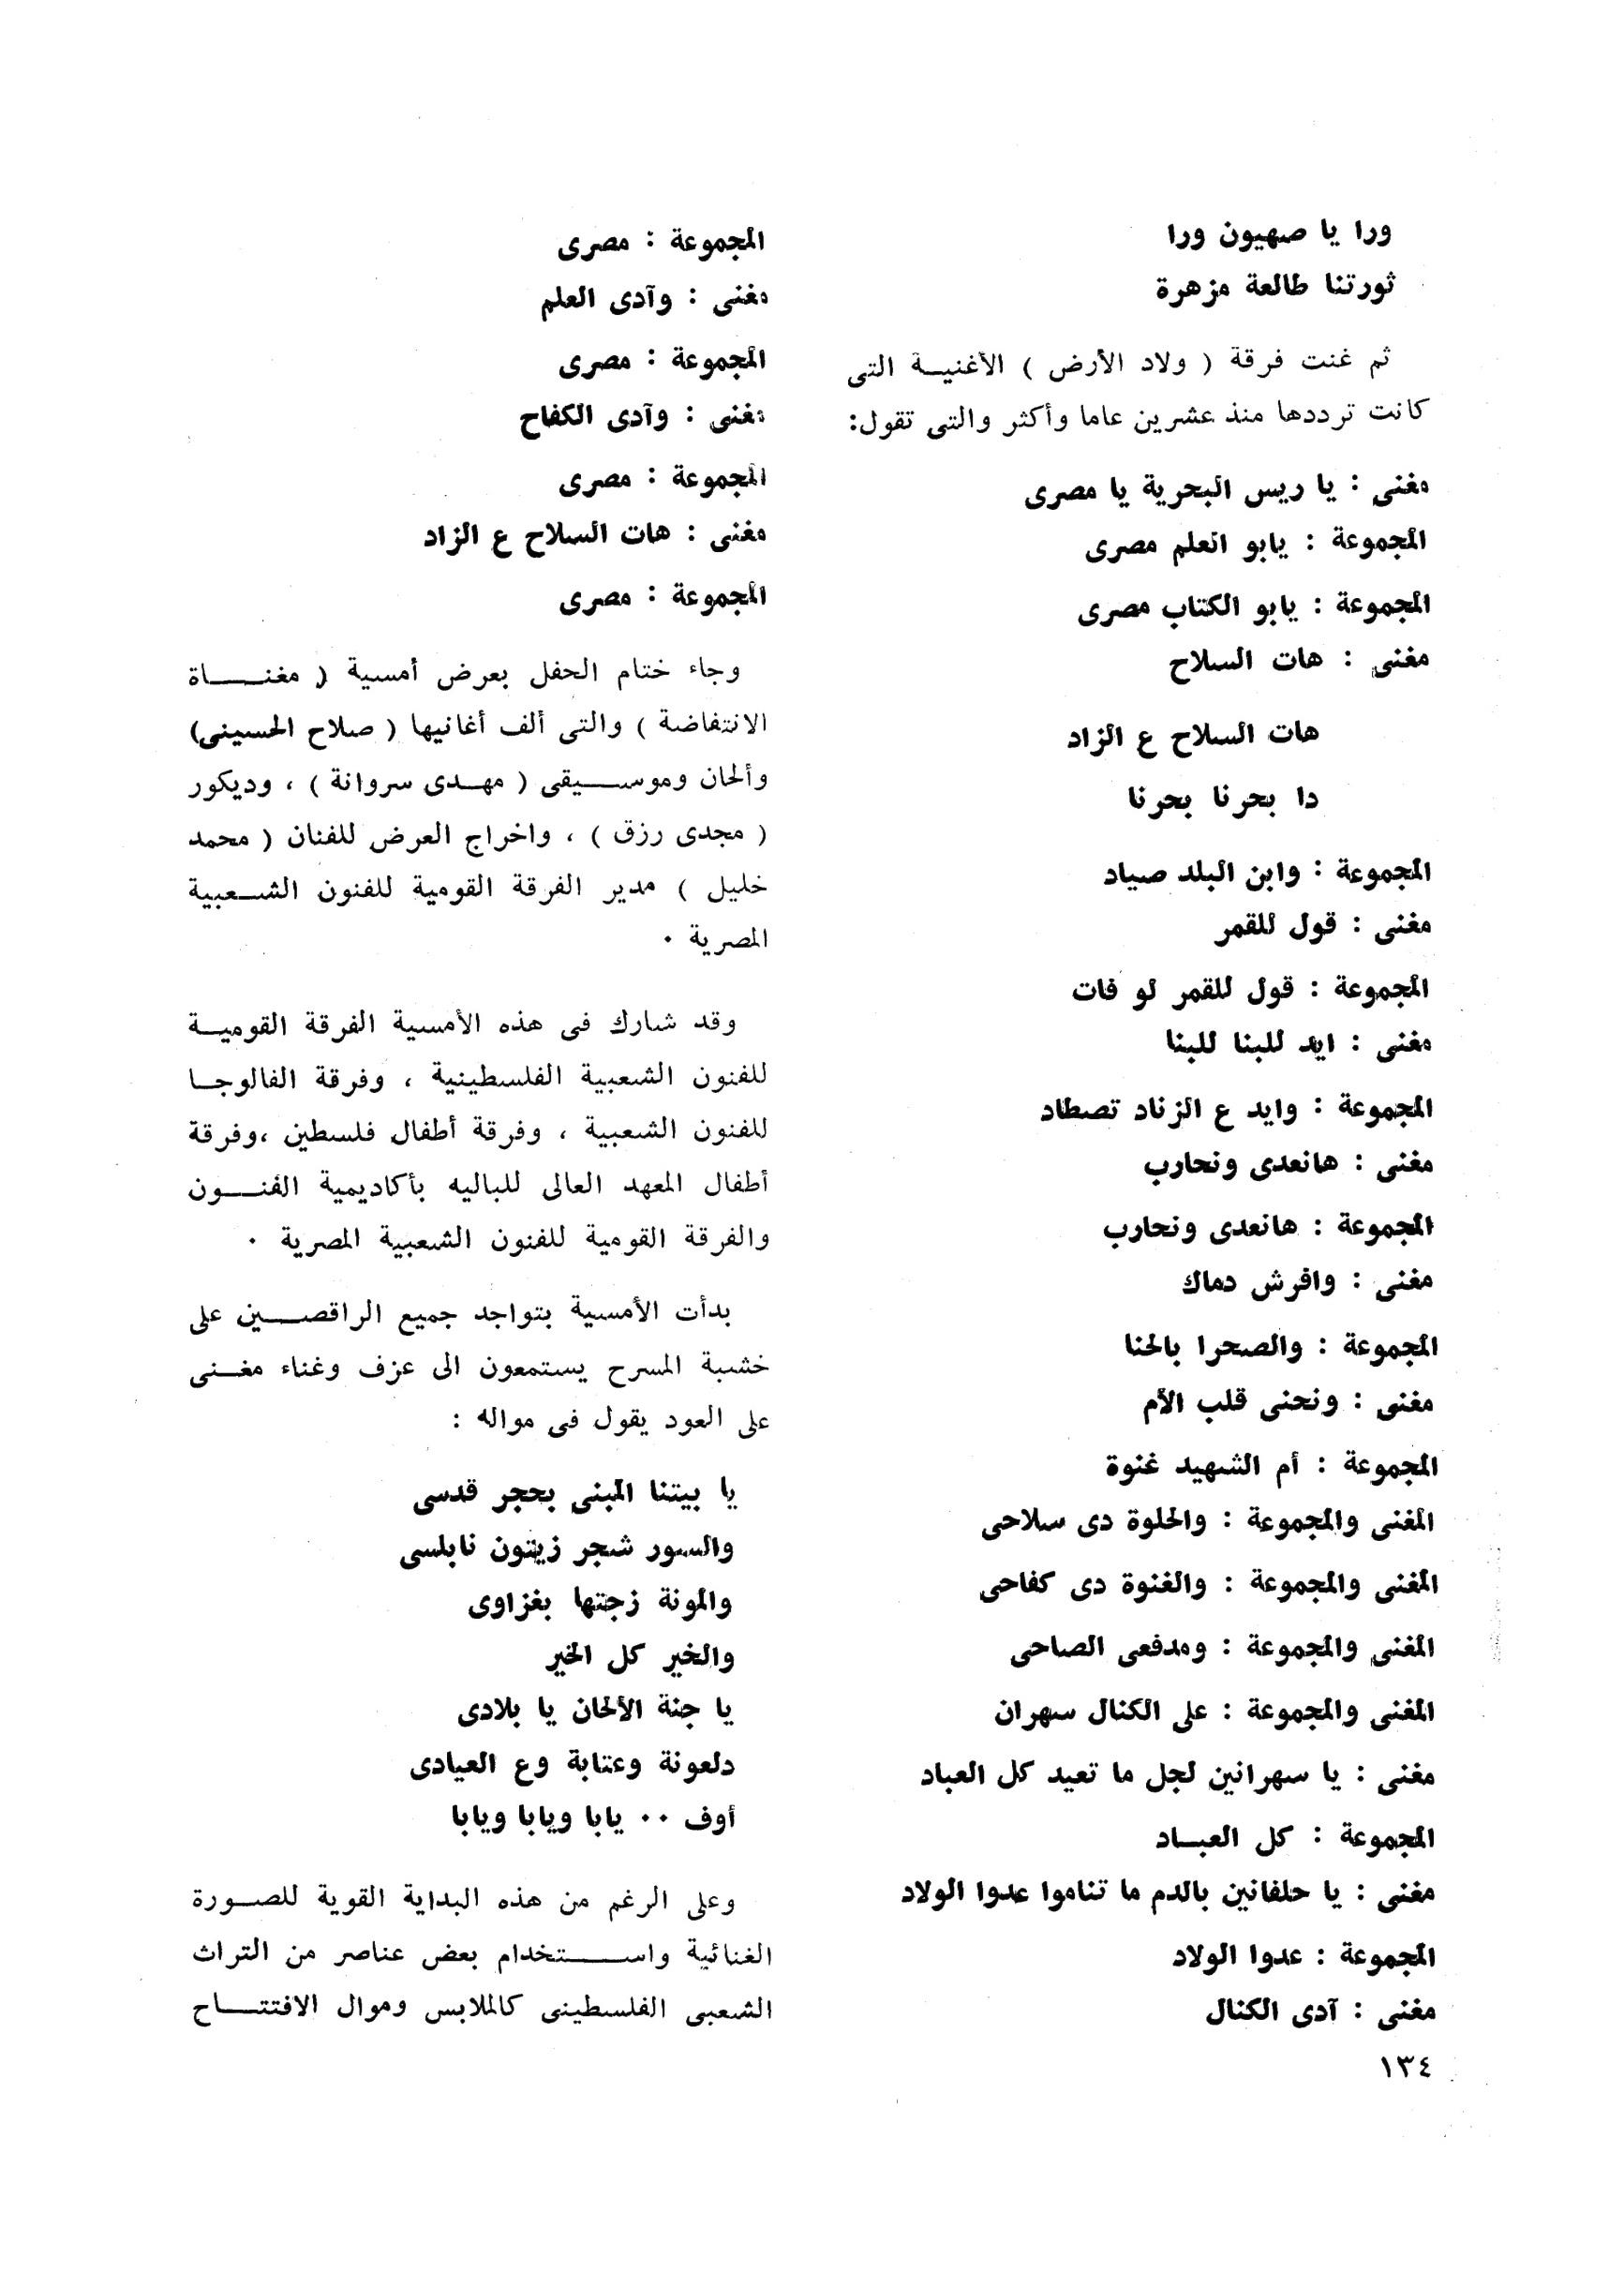 ورا يا صهيون ورا
ثورتنا طالعة مزهرة
ثم غنت فرقة ( ولاد الأرض ) الأغنيــة التى
كانت ترددها منذ عشرين عاما وأكثر والتى تقول:
مغنى : يا ريس البحرية يا مصرى
المجموعة : يابو العلم مصرى
المجموعة : يابو الكتاب مصرى
مغنى : هات السلاح
هات السلاح ع الزاد
دا بحرنا بحرنا
المجموعة : وابن البلد صياد
مغنى : قول للقمر
المجموعة : قول للقمر لو فات
مغنى : ايد للبنا للبنا
المجموعة : وايد ع الزناد تصطاد
مغنى : هانعدى ونحارب
المجموعة : هانعدى ونحارب
مغنى : وافرش دماك
المجموعة : والصحرا بالحنا
مغنى : ونحنى قلب الأم
المجموعة : أم الشهيد غنوة
المغنى والمجموعة : والحلوة دى سلاحى
المغنى والمجموعة : والغنوة دى كفاحى
المغنى والمجموعة : ومدفعى الصاحى
المغنى والمجموعة : على الكنال سهران
مغنى : يا سهرانين لجل ما تعيد كل العباد
المجموعة : كل العبــاد
مغنى : يا حلفانين بالدم ما تناموا عدوا الولاد
المجموعة : عدوا الولاد
مغنى : آدى الكنال
المجموعة : مصرى
مغنى : وآدى العلم
المجموعة : مصرى
مغنى : وآدى الكفاح
المجموعة : مصرى
مغنى : هات السلاح ع الزاد
المجموعة : مصرى
وجاء ختام الحفل بعرض أمسية ( مغنــــاة
الانتفاضة ) والتى ألف أغانيها ( صلاح الحسينى)
وألحان وموســـيقى ( مهــدى سروانة ) ، وديكور
( مجدى رزق ) ، واخراج العرض للفنان ( محمد
خليل ) مدير الفرقة القومية للفنون الشــعبية
المصرية ٠
وقد شارك فى هذه الأمسية الفرقة القوميــة
للفنون الشعبية الفلسطينية ، وفرقة الفالوجــا
للفنون الشعبية ، وفرقة أطفال فلسطين ،وفرقة
أطفال المعهد العالى للباليه بأكاديمية الفنــــون
والفرقة القومية للفنون الشعبية المصرية ٠
بدأت الأمسية بتواجد جميع الراقصـــين على
خشبة المسرح يستمعون الى عزف وغناء مغــنى
على العود يقول فى مواله :
يا بيتنا المبنى بحجر قدسى
والسور شجر زيتون نابلسى
والمونة زجتها بغزاوى
والخير كل الخير
يا جنة الألحان يا بلادى
دلعونة وعتابة وع العيادى
أوف ٠٠ يابا ويابا ويابا
وعلى الرغم من هذه البداية القوية للصــورة
الغنائية واســــتخدام بعض عناصر من التراث
الشعبى الفلسطينى كالملابس وموال الافتتـــاح
١٣٤